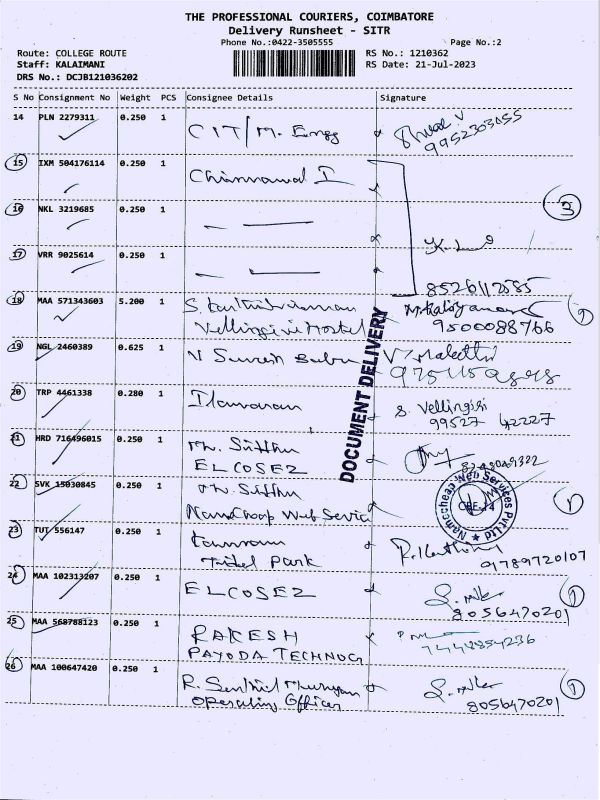 THE PROFESSIONAL COURIERS, COIMBATORE
Delivery Runsheet - SITR
Phone No.:0422-3505555 Page No.:2
Route: COLLEGE ROUTE RS No.: 1210362
Staff: KALAIMANI RS Date: 21-Jul-2023
DRS No.: DCJB121036202
S No Consignment No Weight PCS Consignee Details Signature
14 PLN 2279311 0.250 1 CIT/M. Engg
9952303055
15 IXM 504176114 0.250 1 I
16 NKL 3219685 0.250 1
3
17 VRR 9025614 0.250 1
8526112585
18 MAA 571343603 5.200 1 S.
Vellingiri Hostel 9500088766
19 NGL 2460389 0.625 1 V Suresh Babu V. Malathi
20 TRP 4461338 0.280 1 Ilamaran S. Vellingiri
99527 42227
21 HRD 716496015 0.250 1
ELCOSEZ
22 SVK 15030845 0.250 1
NamaCheap Web Servic
Namecheap Web Services Pvt Ltd
CBE-14
23 TUT 556147 0.250 1
Tidel Park 9789720107
24 MAA 102313207 0.250 1 ELCOSEZ
8056470201
25 MAA 568788123 0.250 1 RAKESH
PAYODA TECHNOG
26 MAA 100647420 0.250 1 R. Senthil Murugan
Operating Officer 8056470201
DOCUMENT DELIVERY